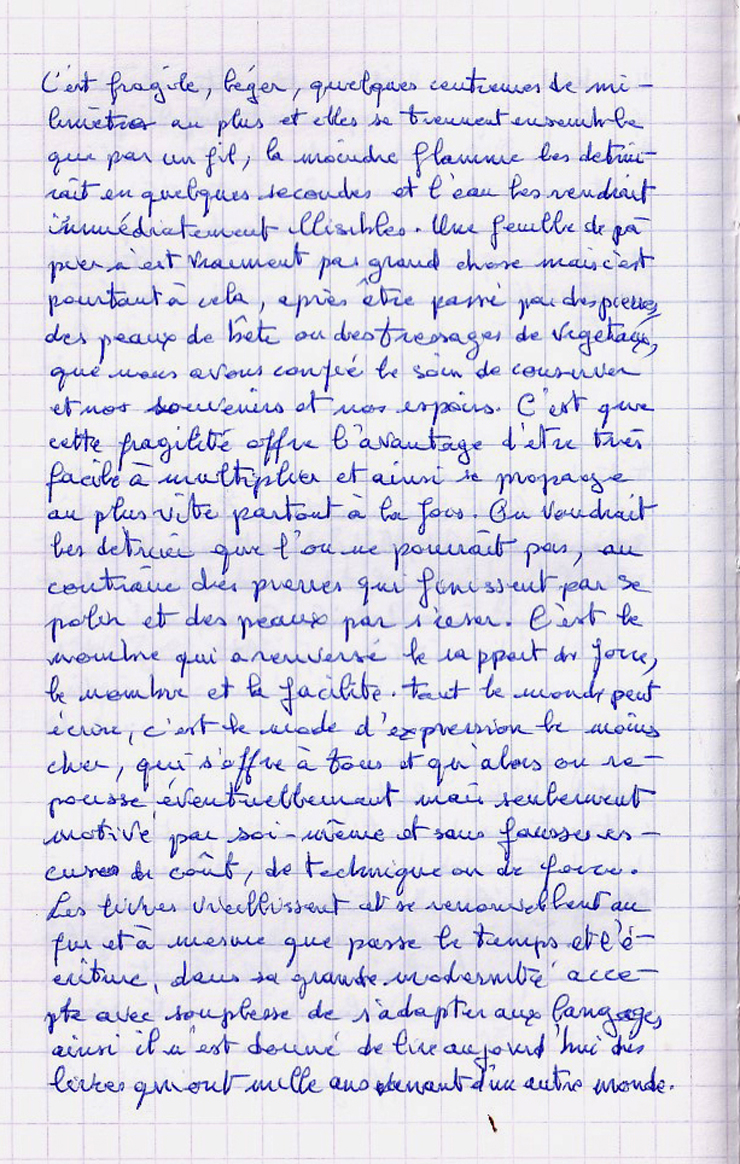 C'est fragile, léger, quelques centaines de mi-
limètres au plus et elles se tiennent ensemble
que par un fil, la moindre flamme les détrui-
rait en quelques secondes et l'eau les rendrait
immédiatement illisibles. Une feuille de pa
pier n'est vraiment pas grand chose mais c'est
pourtant à cela, après être passé par des pierres,
des peaux de bête ou des tressages de végétaux,
que nous avons confié le soin de conserver
et nos souvenirs et nos espoirs. C'est que
cette fragilité offre l'avantage d'être très
facile à multiplier et ainsi se propage
au plus vite partout à la fois. On voudrait
les détruire que l'on ne pourrait pas, au
contraire des pierres qui finissent par se
polir et des peaux par s'user. C'est le
nombre qui a renversé le rapport de force,
le nombre et la facilité. Tout le monde peut
écrire, c'est le mode d'expression le moins
cher, qui s'offre à tous et qu'alors on re-
pousse éventuellement mais seulement
motivé par soi-même et sans fausses ex-
cuses de coût, de technique ou de force.
Les livres vieillissent et se renouvellent au
fur et à mesure que passe le temps et l'é-
criture, dans sa grande modernité acce-
pte avec souplesse de s'adapter aux langages,
ainsi il n'est donné de lire aujourd'hui des
livres qui ont mille ans venant d'un autre monde.